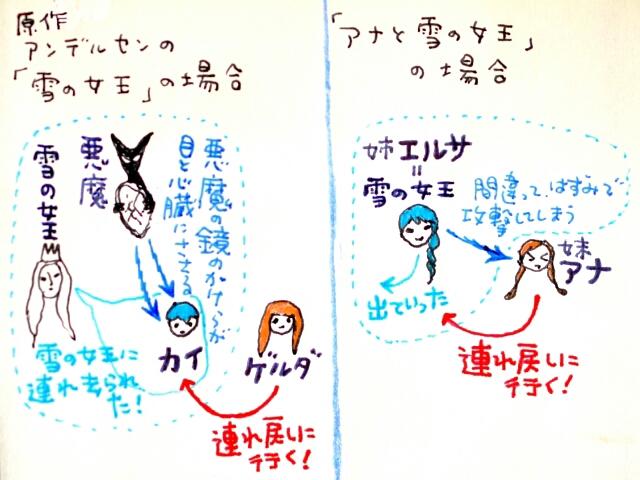 原作
アンデルセンの
「雪の女王」の場合
悪魔の鏡のかけらが
目と心臓にささる
悪魔
雪の女王
カイ
ゲルダ
雪の女王に
連れ去られ
た!
連れ戻しに
行く!
「アナと雪の女王」
の場合
姉エルサ
=
雪の女王
間違って、はずみで
攻撃してしまう
妹
アナ
出ていった
連れ戻しに
行く!